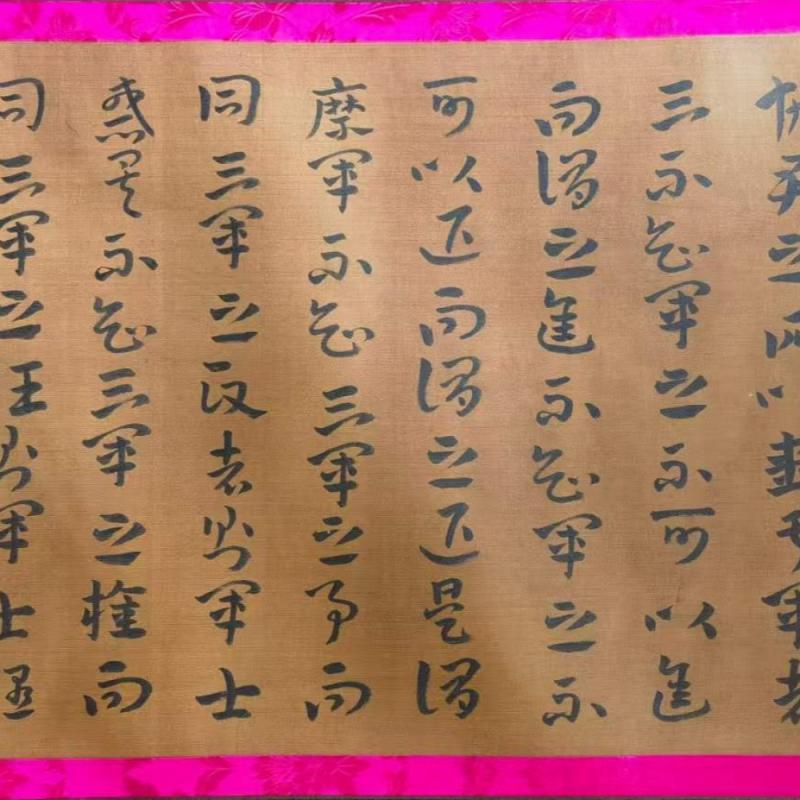 故君之所以患於軍者
三不知軍之不可以進
而謂之進不知軍之不
可以退而謂之退是謂
縻軍不知三軍之事而
同三軍之政者則軍士
惑矣不知三軍之權而
同三軍之任則軍士疑